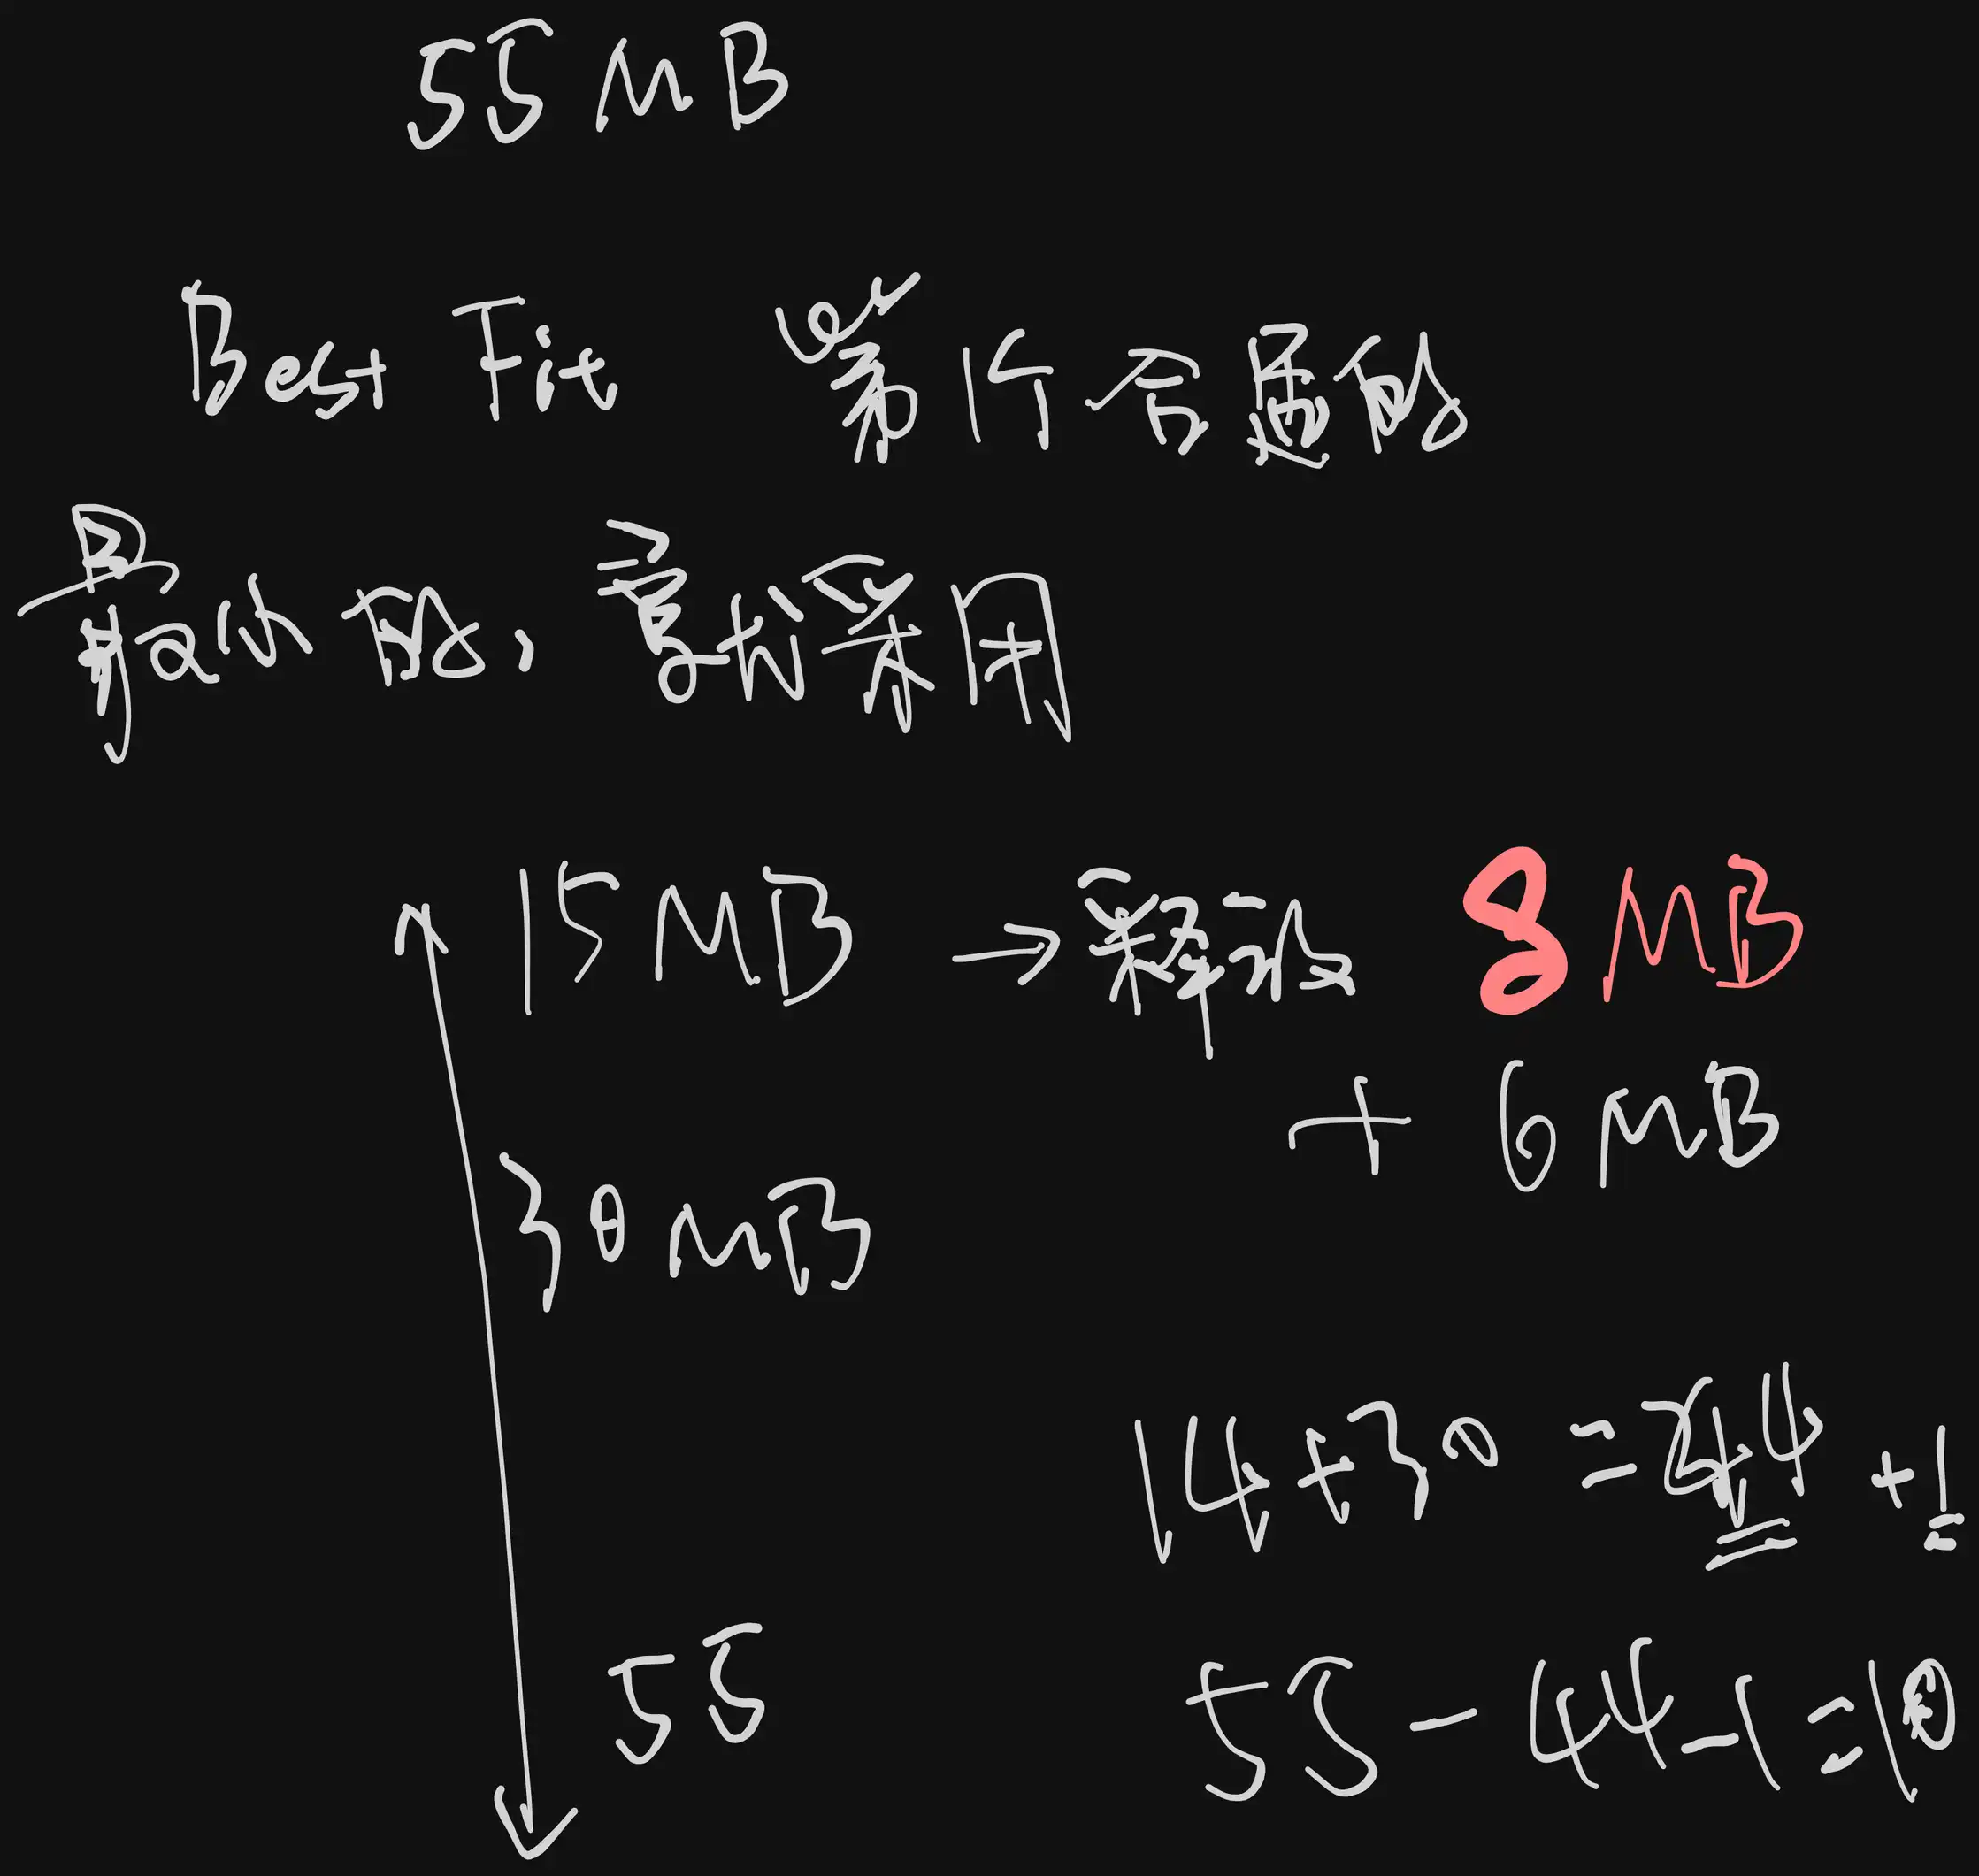 55 MB
Best Fit 将所有合适的
最小的，意思采用
15 MB → 释放 8 MB
+ 6 MB
30 MB
14 + 30 = 44 + 1
55
55 - 44 - 1 = 10